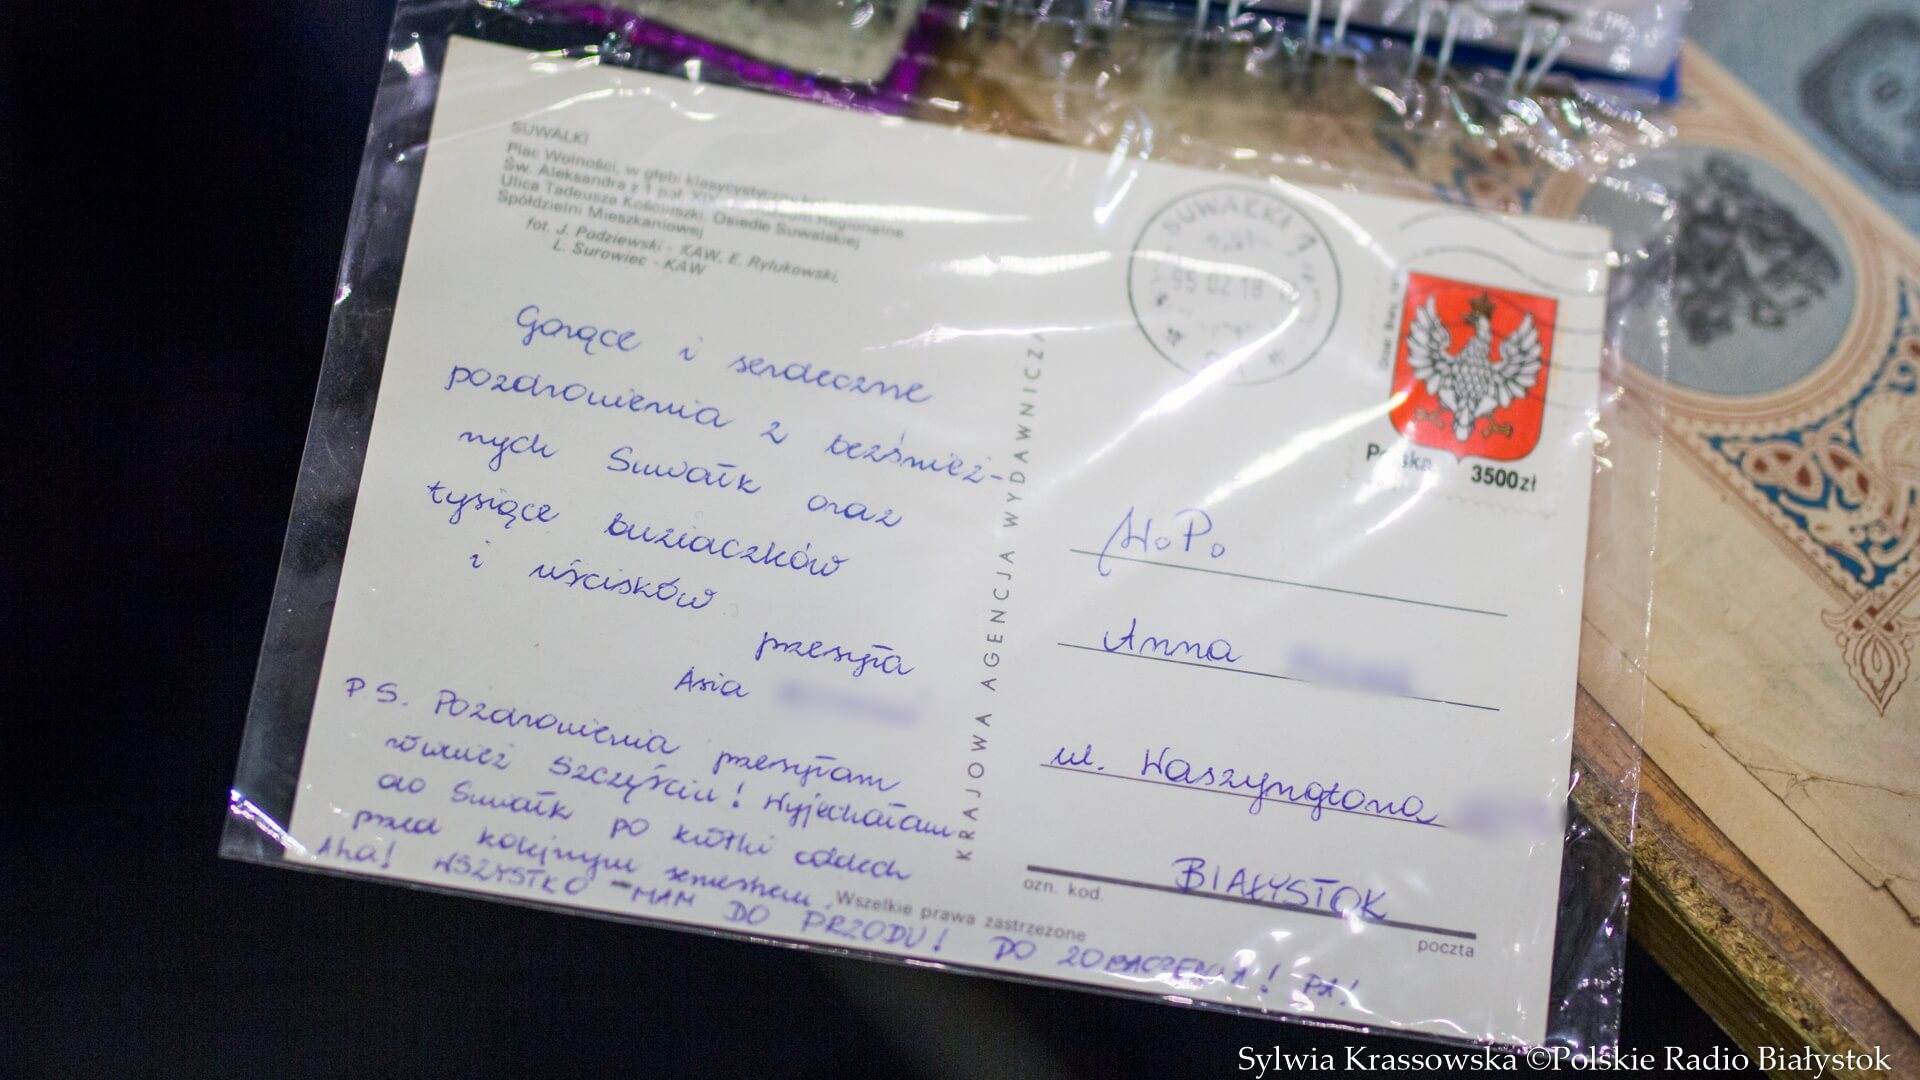 SUWAŁKI
Plac Wolności, w głębi klasycystyczny
Św. Aleksandra z 1 poł. XIX Regionalne
Ulica Tadeusza Kościuszki. Osiedle Suwalskiej
Spółdzielni Mieszkaniowej
fot. J. Podziewski - KAW, E. Rylukowski,
L. Surowiec - KAW
Gorące i serdeczne
pozdrowienia z bezśnież-
nych Suwałk oraz
tysiące buziaczków
i uścisków
przesyła
Asia
P.S. Pozdrowienia przesyłam
również Szczęściu! Wyjechałam
do Suwałk po krótki oddech
przed kolejnym semestrem.
Aha! WSZYSTKO MAM DO PRZODU! DO ZOBACZENIA! PA!
Wszelkie prawa zastrzeżone
KRAJOWA AGENCJA WYDAWNICZA
SUWAŁKI 1
95 02 18
Polska 3500zł
W.P.
Anna
ul. Waszyngtona
BIAŁYSTOK
ozn. kod.
poczta
Sylwia Krassowska ©Polskie Radio Białystok